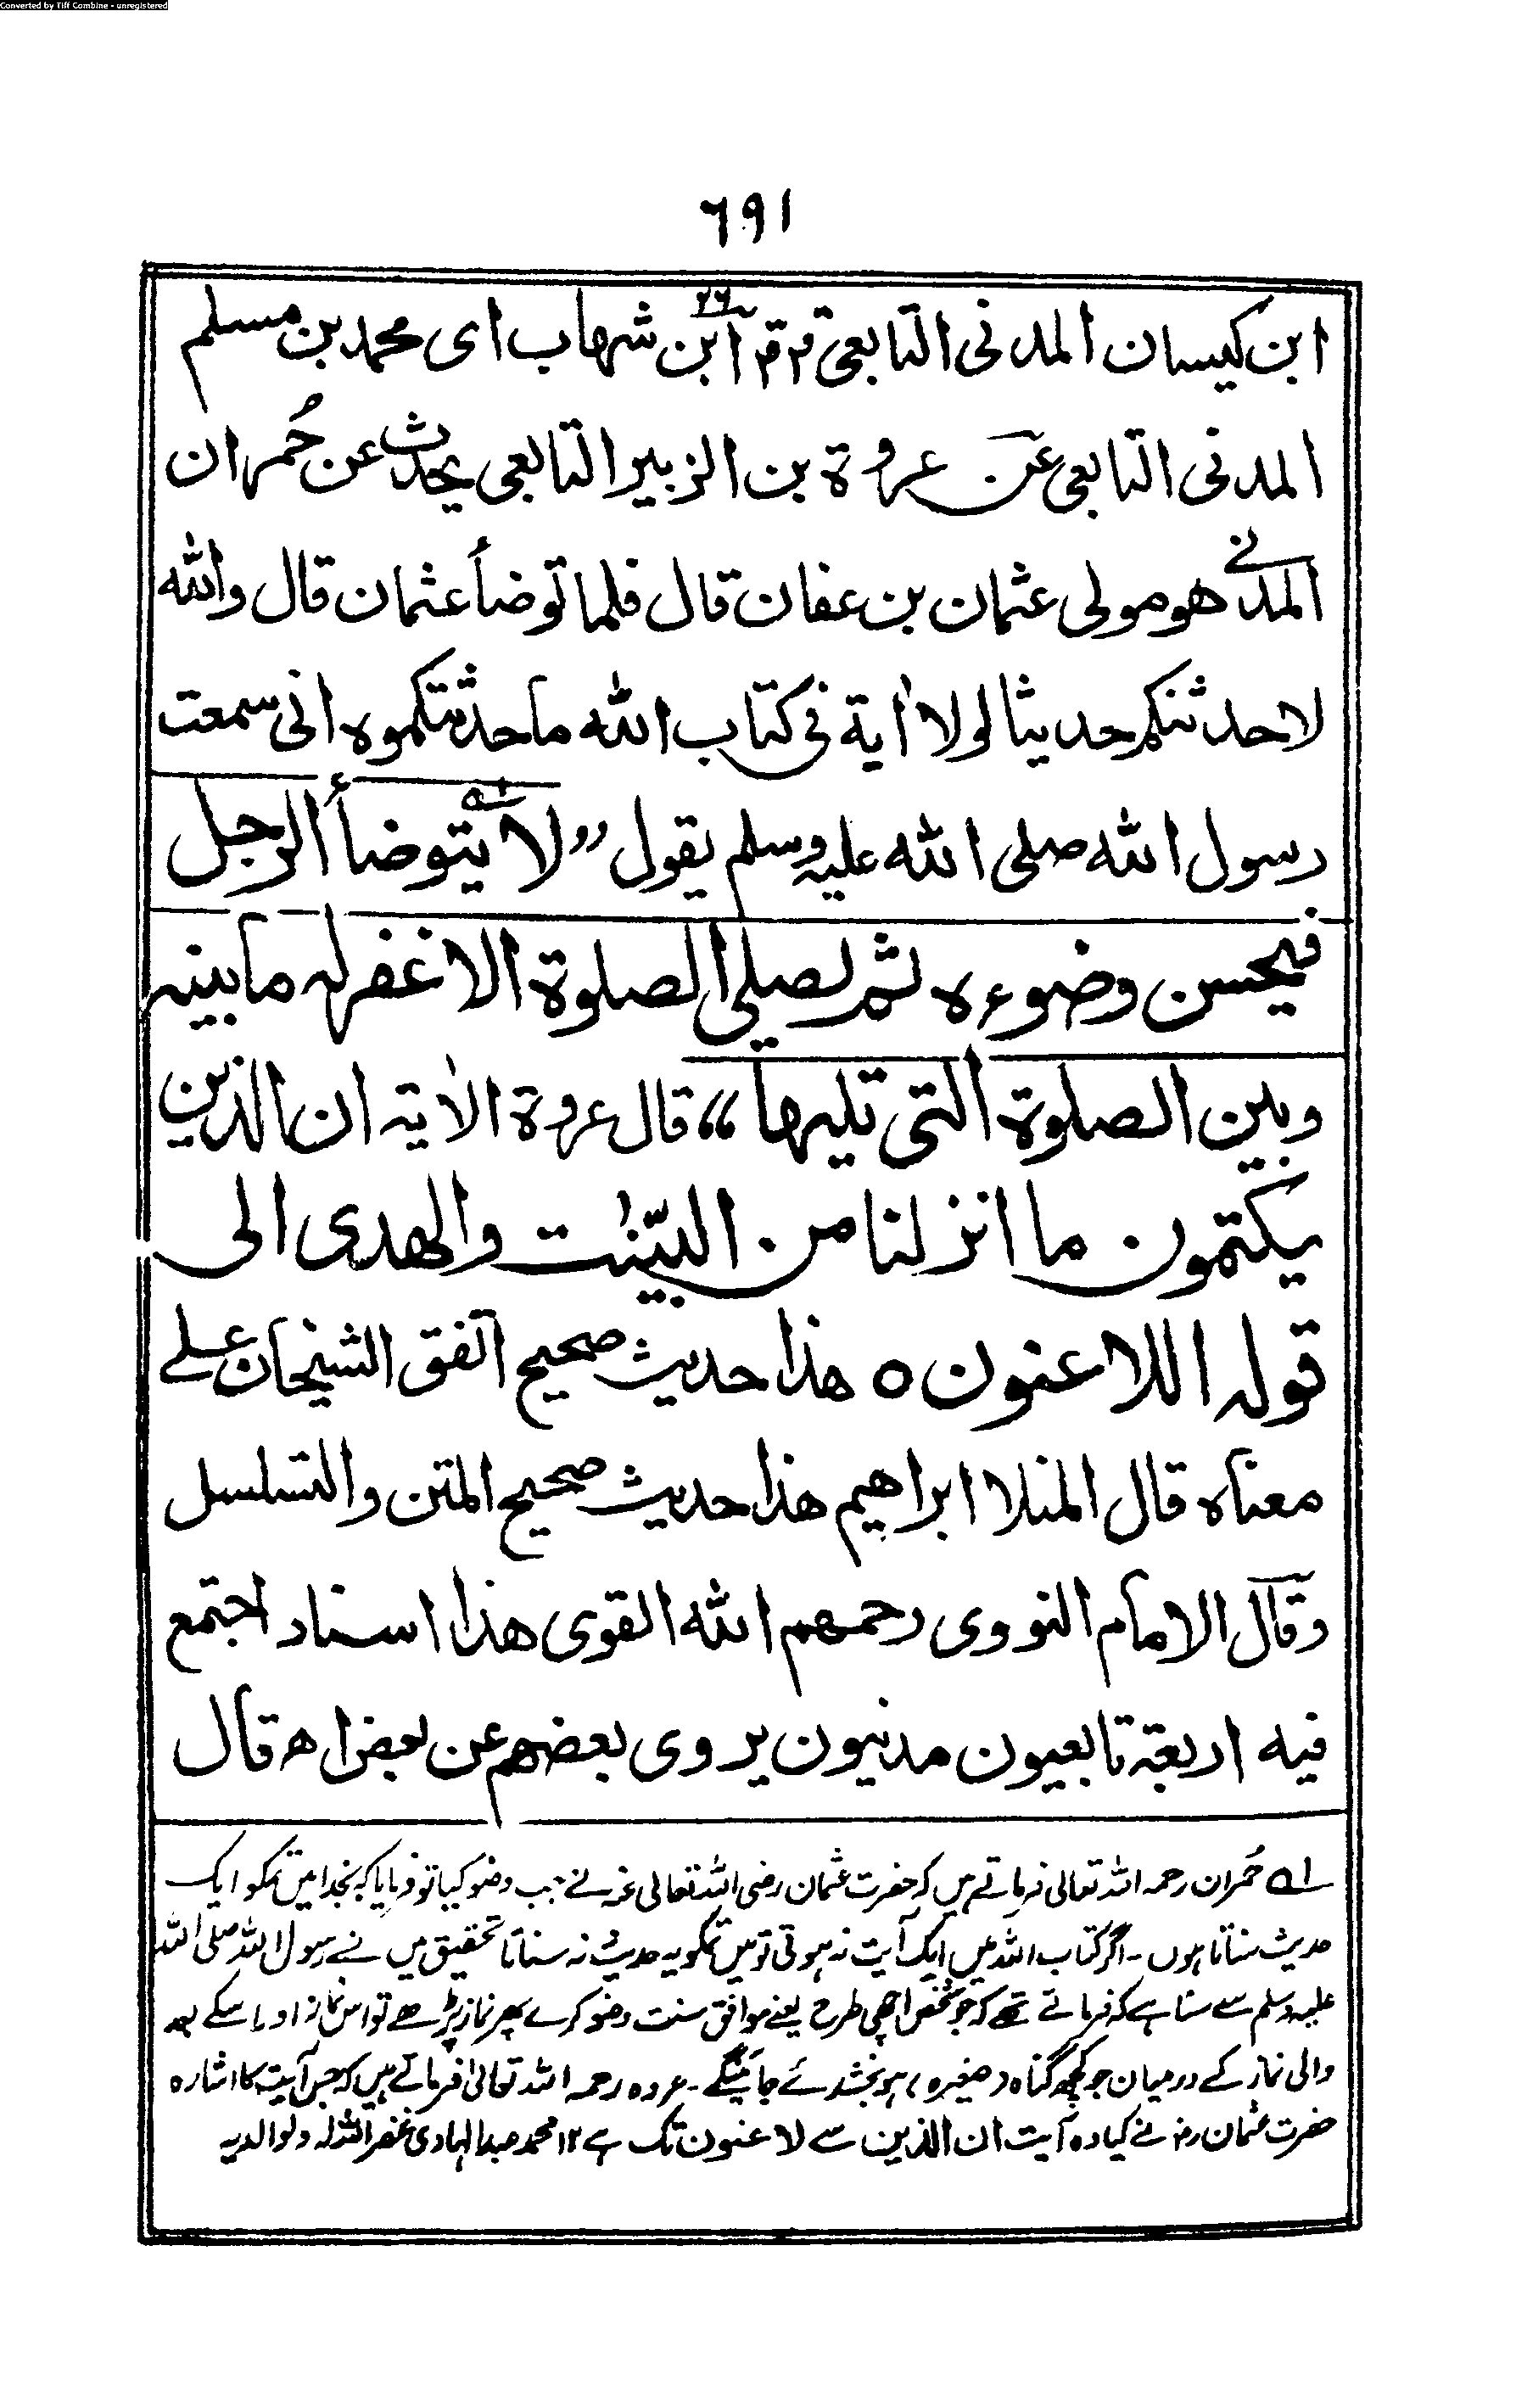 Converted by Tiff Combine - unregistered
٦٩١
ابن كيسان المدنى التابعى ابن شهاب اى محمد بن مسلم
المدنى التابعى عن عروة بن الزبير التابعى يحدث عن حُمران
المدنى هو مولى عثمان بن عفان قال فلما توضأ عثمان قال والله
لاحدثنكم حديثا لولا اٰية فى كتاب الله ما حدثتكموه انى سمعت
رسول الله صلى الله عليه وسلم يقول ”لا يتوضأ الرجل
فيحسن وضوءه ثم يصلى الصلوة الا غفر له ما بينه
وبين الصلوة التى تليها“ قال عروة الاٰية ان الذين
يكتمون ما انزلنا من البيّنٰت والهدى الى
قوله اللاعنون ه هذا حديث صحيح اتفق الشيخان على
معناه قال المنلا ابراهيم هذا حديث صحيح المتن والتسلسل
وقال الامام النووى رحمهم الله القوى هذا اسناد اجتمع
فيه اربعة تابعيون مدنيون يروى بعضهم عن بعض اه قال
لہ حُمران رحمہ اللہ تعالی فرماتے ہیں کہ حضرت عثمان رضی اللہ تعالی عنہ نے جب وضو کیا تو فرمایا کہ بخدا میں تمکو ایک
حدیث سناتا ہوں ۔ اگر کتاب اللہ میں ایک آیت نہ ہوتی تو میں تمکو یہ حدیث نہ سناتا تحقیق میں نے رسول اللہ صلی اللہ
علیہ وسلم سے سنا ہے کہ فرماتے تھے کہ جو شخص اچھی طرح یعنے موافق سنت وضو کرے پھر نماز پڑھے تو اس نماز اور اسکے بعد
والی نماز کے درمیان جو کچھ گناہ (صغیرہ) ہو بخشدئے جائینگے ۔ عروہ رحمہ اللہ تعالیٰ فرماتے ہیں کہ جس آیت کا اشارہ
حضرت عثمان رضہ نے کیا وہ آیت ان الذین سے لاعنون تک ہے ١٢ محمد عبدالہادی غفر اللہ لہ ولوالدیہ